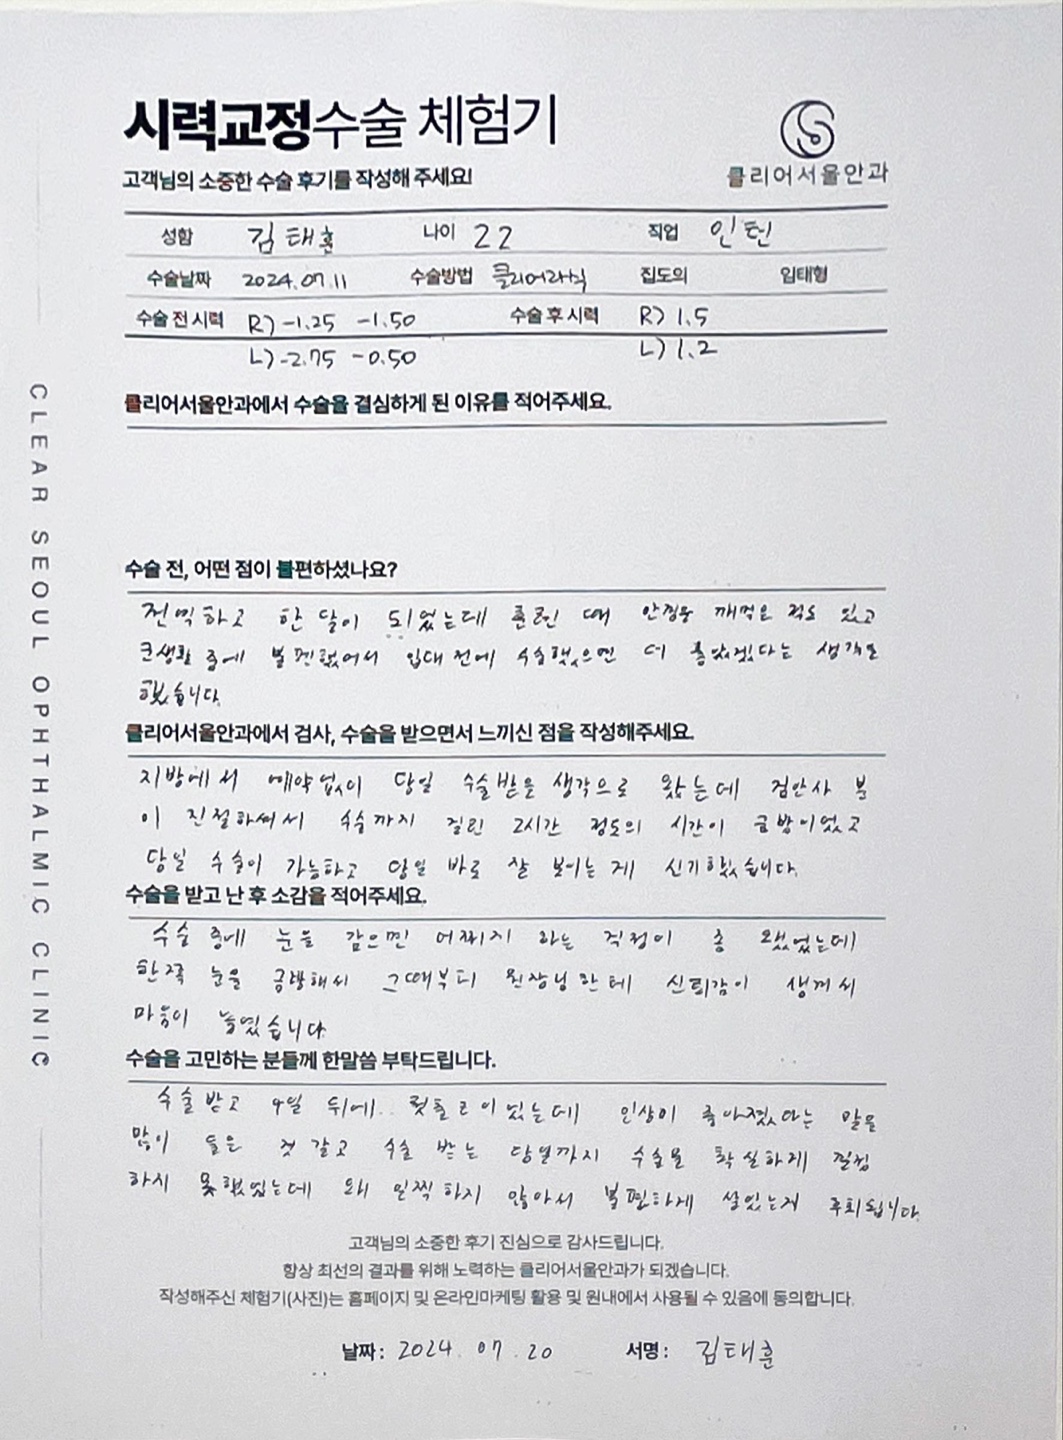 시력교정수술 체험기
고객님의 소중한 수술 후기를 작성해 주세요!
클리어서울안과
성함 김태훈 나이 22 직업 인턴
수술날짜 2024.07.11 수술방법 클리어라식 집도의 임태형
수술 전 시력 R) -1.25 -1.50 수술 후 시력 R) 1.5
L) -2.75 -0.50 L) 1.2
CLEAR SEOUL OPHTHALMIC CLINIC
클리어서울안과에서 수술을 결심하게 된 이유를 적어주세요.
수술 전, 어떤 점이 불편하셨나요?
전역하고 한 달이 되었는데 훈련 때 안경을 깨먹은 적도 있고
군생활 중에 불편했어서 입대 전에 수술했으면 더 좋았겠다는 생각을
했습니다.
클리어서울안과에서 검사, 수술을 받으면서 느끼신 점을 작성해주세요.
지방에서 예약없이 당일 수술받을 생각으로 왔는데 검안사 분
이 친절하셔서 수술까지 걸린 2시간 정도의 시간이 금방이었고
당일 수술이 가능하고 당일 바로 잘 보이는 게 신기했습니다.
수술을 받고 난 후 소감을 적어주세요.
수술 중에 눈을 감으면 어쩌지 하는 걱정이 좀 있었는데
한쪽 눈을 금방해서 그때부터 원장님한테 신뢰감이 생겨서
마음이 놓였습니다.
수술을 고민하는 분들께 한말씀 부탁드립니다.
수술받고 9일 뒤에.. 됐는데 인상이 좋아졌다는 말을
많이 들은 것 같고 수술 받는 당일까지 수술을 확실하게 결정
하지 못했었는데 왜 일찍 하지 않아서 불편하게 살았는지 후회됩니다.
고객님의 소중한 후기 진심으로 감사드립니다.
항상 최선의 결과를 위해 노력하는 클리어서울안과가 되겠습니다.
작성해주신 체험기(사진)는 홈페이지 및 온라인마케팅 활용 및 원내에서 사용될 수 있음에 동의합니다.
날짜: 2024. 07. 20 서명: 김태훈